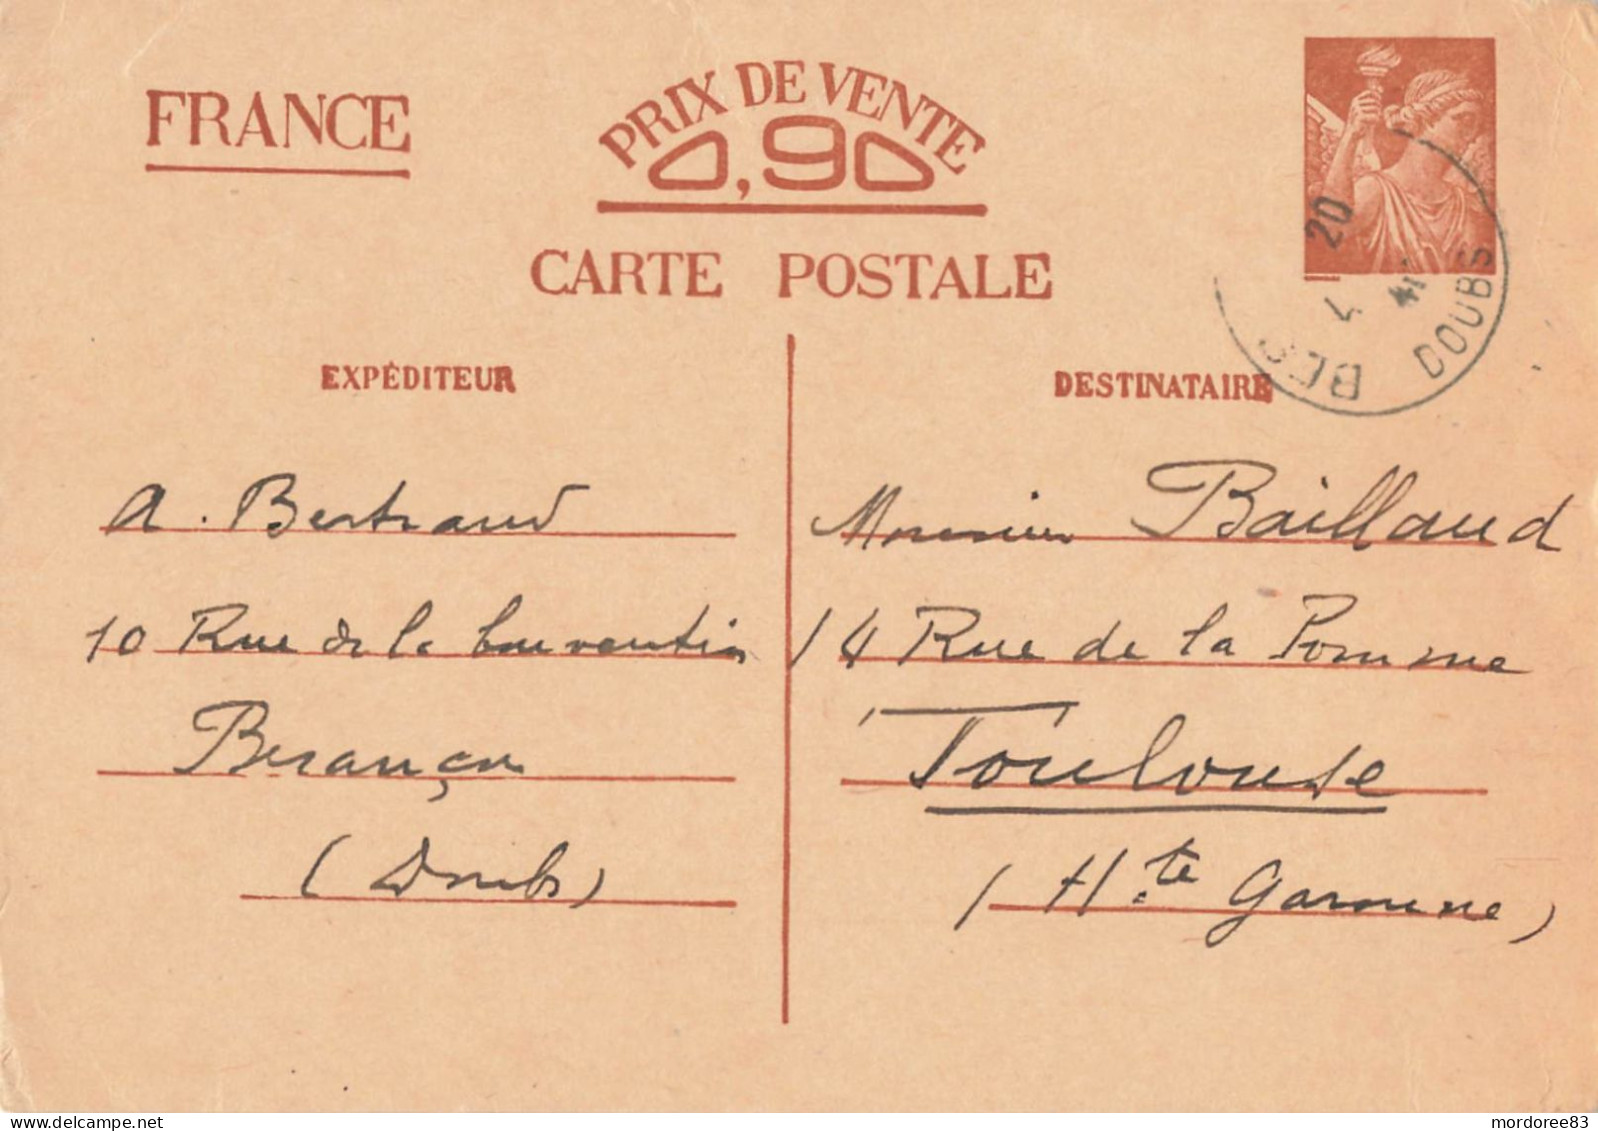 FRANCE
PRIX DE VENTE
0,90
CARTE POSTALE
EXPÉDITEUR
DESTINATAIRE
20
DOUBS
A. Bertrand
10 Rue de la Convention
Besançon
(Doubs)
Monsieur Baillaud
14 Rue de la Pomme
Toulouse
(Hte Garonne)
mordoree83